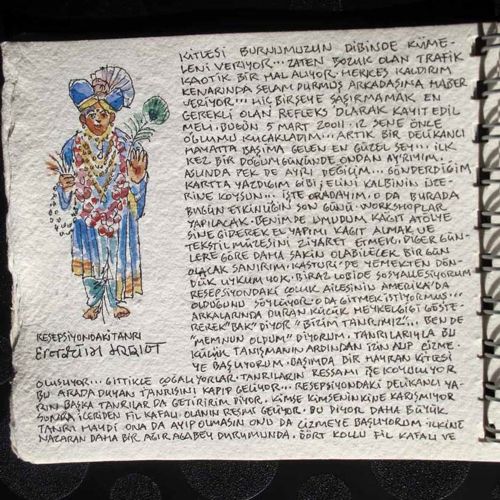 KİTLESİ BURNUMUZUN DİBİNDE KÜME-
LENİ VERİYOR... ZATEN BOZUK OLAN TRAFİK
KAOTİK BİR HAL ALIYOR. HERKES KALDIRIM
KENARINDA SELAM DURMUŞ ARKADAŞIMA HABER
VERİYOR... HİÇ BİRŞEYE ŞAŞIRMAMAK EN
GEREKLİ OLAN REFLEKS OLARAK KAYIT EDİL
MELİ. BUGÜN 5 MART 2001. 12 SENE ÖNCE
OĞLUMU KUCAKLADIM... ARTIK BİR DELİKANLI
HAYATTA BAŞIMA GELEN EN GÜZEL ŞEY... İLK
KEZ BİR DOĞUM GÜNÜNDE ONDAN AYRIYIM.
ASLINDA PEK DE AYRI DEĞİÜM... GÖNDERDİĞİM
KARTTA YAZDIĞIM GİBİ, ELİNİ KALBİNİN ÜZE-
RİNE KOYSUN... İŞTE ORADAYIM. O DA BURADA
BUGÜN ETKİNLİĞİN SON GÜNÜ. WORKSHOPLAR
YAPILACAK. BENİM DE UMUDUM KAĞIT ATÖLYE
SİNE GİDEREK EL YAPIMI KAĞIT ALMAK VE
TEKSTİL MÜZESİNİ ZİYARET ETMEK. DİĞER GÜN-
LERE GÖRE DAHA SAKİN OLABİLECEK BİR GÜN
OLACAK SANIRIM. KASTURİ DE YEMEKTEN DÖN-
DÜK UYKUM YOK. BİRAZ LOBİDE SOSYALLEŞİYORUM
RESEPSİYONDAKİ ÇOCUK AİLESİNİN AMERİKA'DA
OLDUĞUNU SÖYLÜYOR. O DA GİTMEK İSTİYORMUŞ...
ARKALARINDA DURAN KÜÇÜK HEYKELCİĞİ GÖSTE-
REREK "BAK" DİYOR "BİZİM TANRIMIZ"... BEN DE
"MEMNUN OLDUM" DİYORUM. TANRILARIYLA BU
KÜÇÜK TANIŞMANIN ARDINDAN İZİN ALIP ÇİZME-
YE BAŞLIYORUM. BAŞIMDA BİR HAYRAN KİTLESİ
RESEPSİYONDAKİ TANRI
OLUŞUYOR... GİTTİKÇE ÇOĞALIYORLAR. TANRILARIN RESSAMI İŞE KOYULUYOR
BU ARADA DUYAN TANRISINI KAPIP GELİYOR... RESEPSİYONDAKİ DELİKANLI YA-
RIN BAŞKA TANRILAR DA GETİRİRİM DİYOR. KİMSE KİMSENİNKİNE KARIŞMIYOR
SONRA İÇERDEN FİL KAFALI OLANIN RESMİ GELİYOR. BU DİYOR DAHA BÜYÜK
TANRI HAYDİ ONA DA AYIP OLMASIN ONU DA ÇİZMEYE BAŞLIYORUM İLKİNE
NAZARAN DAHA BİR AĞIR AĞABEY DURUMUNDA. DÖRT KOLLU FİL KAFALI VE